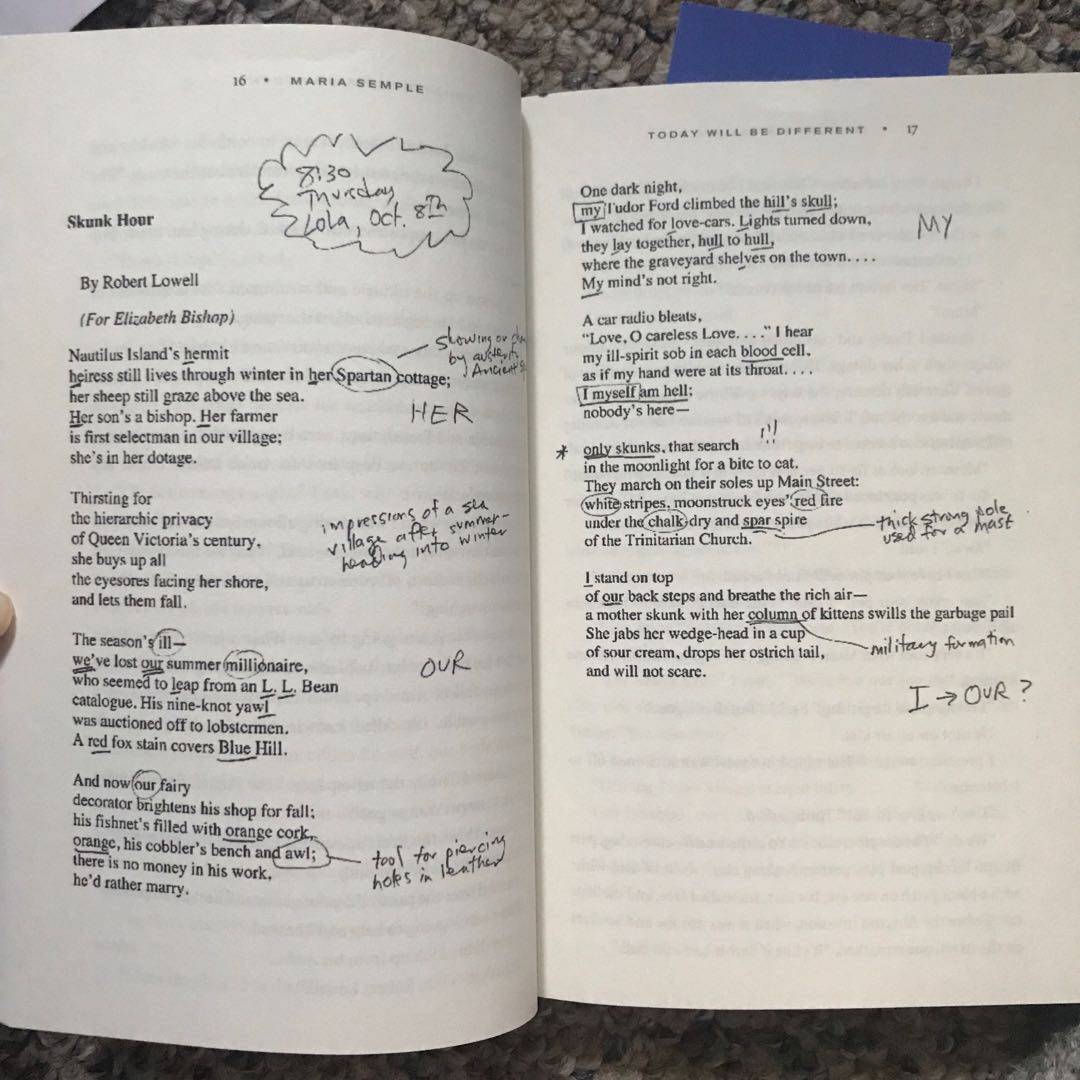 16 • MARIA SEMPLE
8:30
Thursday
Lola, Oct. 8th
Skunk Hour
By Robert Lowell
(For Elizabeth Bishop)
Nautilus Island's hermit
heiress still lives through winter in her Spartan cottage;
her sheep still graze above the sea.
Her son's a bishop. Her farmer
is first selectman in our village;
she's in her dotage.
showing or
by
Ancient
HER
Thirsting for
the hierarchic privacy
of Queen Victoria's century,
she buys up all
the eyesores facing her shore,
and lets them fall.
impressions of a sea
village after summer-
heading into winter
The season's ill—
we've lost our summer millionaire,
who seemed to leap from an L. L. Bean
catalogue. His nine-knot yawl
was auctioned off to lobstermen.
A red fox stain covers Blue Hill.
OUR
And now our fairy
decorator brightens his shop for fall;
his fishnet's filled with orange cork,
orange, his cobbler's bench and awl;
there is no money in his work,
he'd rather marry.
tool for piercing
holes in leather
TODAY WILL BE DIFFERENT • 17
One dark night,
my Tudor Ford climbed the hill's skull;
I watched for love-cars. Lights turned down,
they lay together, hull to hull,
where the graveyard shelves on the town. . . .
My mind's not right.
MY
A car radio bleats,
"Love, O careless Love. . . ." I hear
my ill-spirit sob in each blood cell,
as if my hand were at its throat. . . .
I myself am hell;
nobody's here—
* only skunks, that search !!!
in the moonlight for a bite to eat.
They march on their soles up Main Street:
white stripes, moonstruck eyes' red fire
under the chalk-dry and spar spire
of the Trinitarian Church.
thick strong pole
used for a mast
I stand on top
of our back steps and breathe the rich air—
a mother skunk with her column of kittens swills the garbage pail
She jabs her wedge-head in a cup
of sour cream, drops her ostrich tail,
and will not scare.
military formation
I → OUR ?